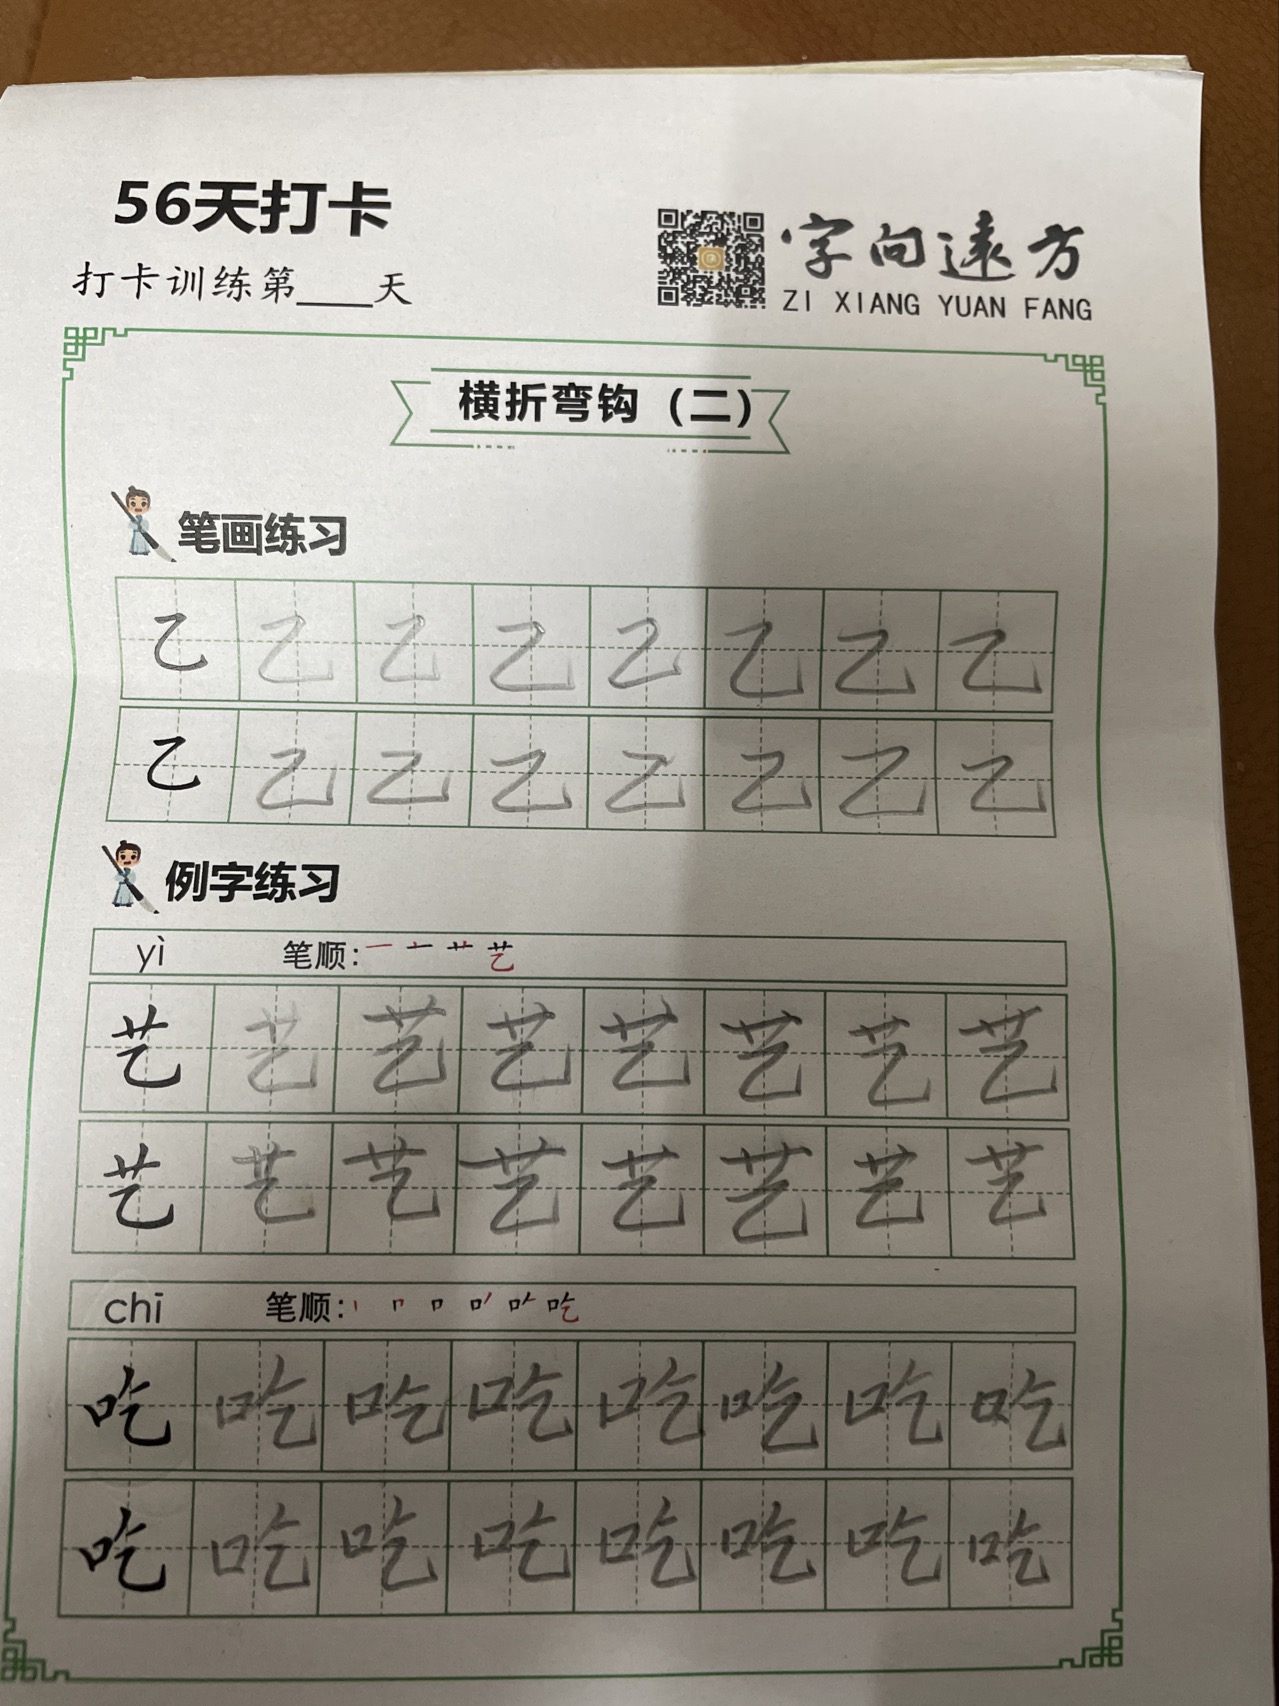 56天打卡
打卡训练第____天
字向遠方
ZI XIANG YUAN FANG
横折弯钩（二）
笔画练习
乙 乙 乙 乙 乙 乙 乙 乙
乙 乙 乙 乙 乙 乙 乙 乙
例字练习
yì 笔顺: 一 十 艹 艺
艺 艺 艺 艺 艺 艺 艺 艺
艺 艺 艺 艺 艺 艺 艺 艺
chī 笔顺: 丨 冂 口 吃
吃 吃 吃 吃 吃 吃 吃 吃
吃 吃 吃 吃 吃 吃 吃 吃